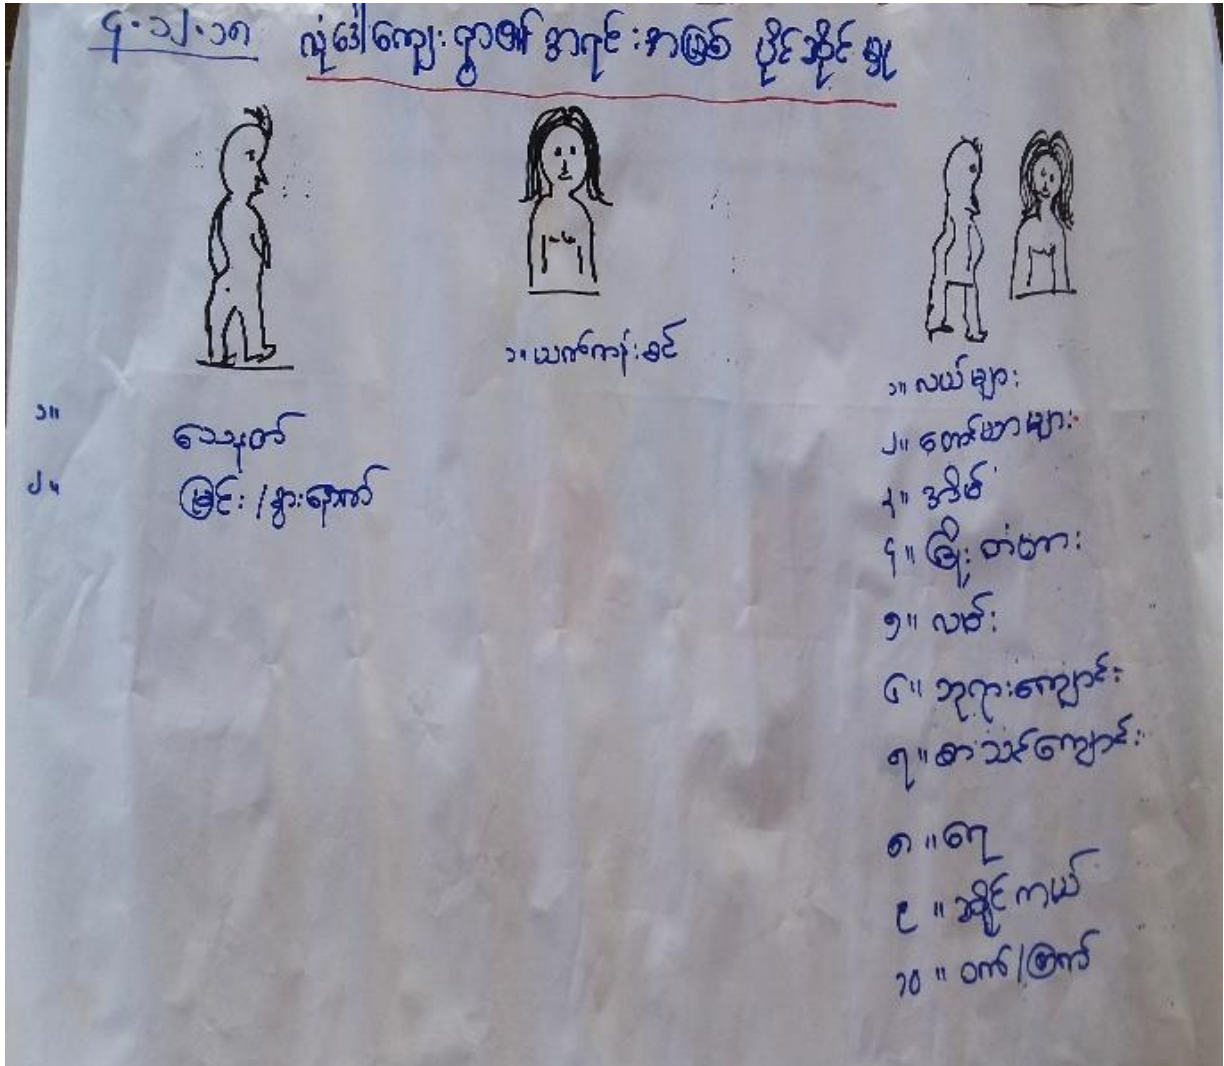 ၄.၁၂.၁၈ လုံဒေါ်ကျေးရွာ၏ အရင်းအမြစ် ပိုင်ဆိုင်မှု
၁။ ယက်ကန်းစင်
၁။ သေနတ်
၂။ မြင်း/နွားနောက်
၁။ လယ်များ
၂။ တောင်ယာများ
၃။ အိမ်
၄။ ခြံ တံတား
၅။ လမ်း
၆။ ဘုရားကျောင်း
၇။ စာသင်ကျောင်း
၈။ ရေ
၉။ ဆိုင်ကယ်
၁၀။ ဝက်/ကြက်